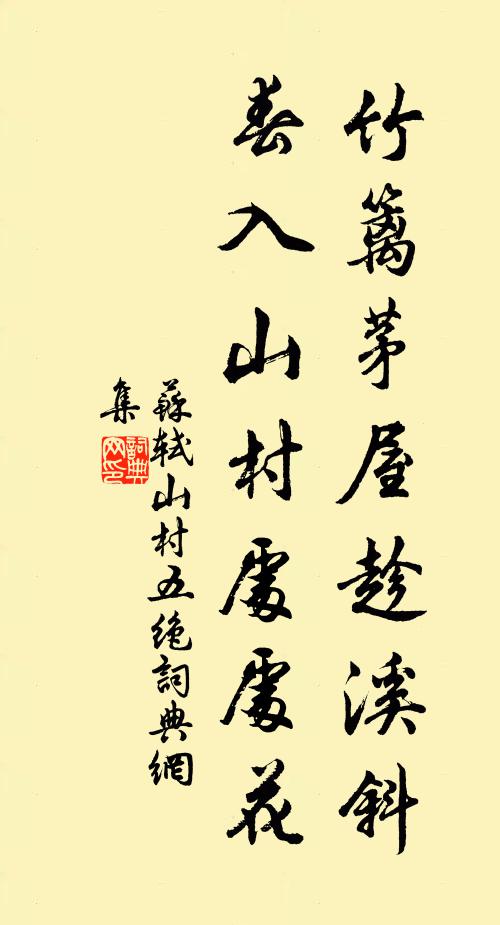 竹籬茅屋趁溪斜
春入山村處處花
蘇軾山村五絶詞典網
集
詞典網印